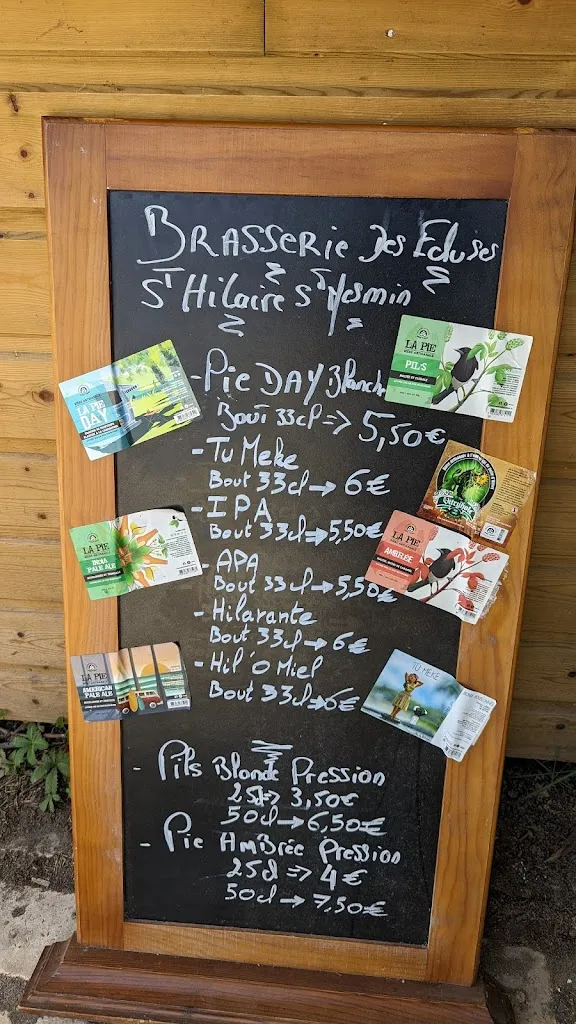 BRASSERIE Des Ecluses
St Hilaire St Mesmin
- Pie DAY Blanche
Bout 33cl => 5,50€
- Tu Meke
Bout 33cl → 6€
- IPA
Bout 33cl → 5,50€
- APA
Bout 33cl → 5,50€
- Hilarante
Bout 33cl → 6€
- Hil'O Miel
Bout 33cl → 6€
- Pils Blonde Pression
25cl => 3,50€
50cl → 6,50€
- Pie AmBrée Pression
25cl => 4€
50cl → 7,50€
LA PIE
DAY
LA PIE
PILS
LA PIE
INDIA
PALE ALE
LA PIE
AMBRÉE
AMERICAN
PALE ALE
TU MEKE